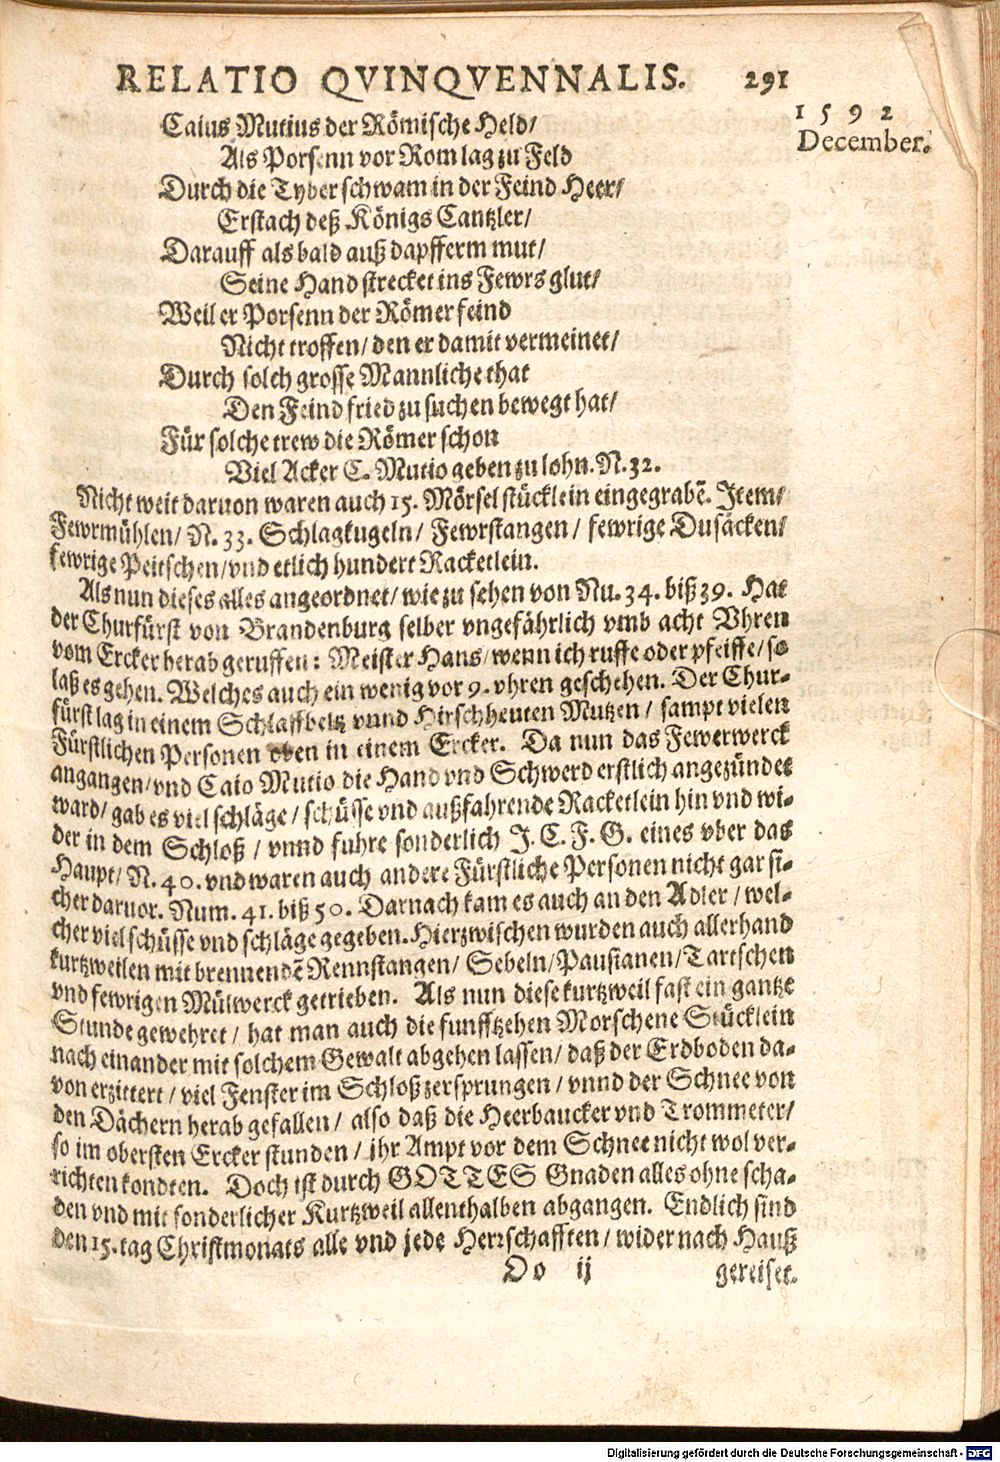 RELATIO QVINQVENNALIS. 291
1592
December.
Caius Mutius der Römische Held/
Als Porsenn vor Rom lag zu Feld
Durch die Tyber schwam in der Feind Heer/
Erstach deß Königs Cantzler/
Darauff als bald auß dapfferm mut/
Seine Hand strecket ins Fewrs glut/
Weil er Porsenn der Römer feind
Nicht troffen/ den er damit vermeinet/
Durch solch grosse Mannliche that
Den Feind fried zu suchen bewegt hat/
Für solche trew die Römer schon
Viel Acker C. Mutio geben zu lohn. N. 32.
Nicht weit daruon waren auch 15. Mörsel stücklein eingegrabẽ. Item/
Fewrmühlen/ N. 33. Schlagkugeln/ Fewrstangen/ fewrige Dusäcken/
fewrige Peitschen/ vnd etlich hundert Racketlein.
Als nun dieses alles angeordnet/ wie zu sehen von Nu. 34. biß 39. Hat
der Churfürst von Brandenburg selber vngefährlich vmb acht Vhren
vom Ercker herab geruffen: Meister Hans/ wenn ich ruffe oder pfeiffe/ so
laß es gehen. Welches auch ein wenig vor 9. vhren geschehen. Der Chur-
fürst lag in einem Schlaffbeltz vnnd Hirschheuten Mutzen/ sampt vielen
Fürstlichen Personen oben in einem Ercker. Da nun das Fewerwerck
angangen/ vnd Caio Mutio die Hand vnd Schwerd erstlich angezündet
ward/ gab es viel schläge/ schüsse vnd außfahrende Racketlein hin vnd wi-
der in dem Schloß/ vnnd fuhre sonderlich J. C. F. G. eines vber das
Haupt/ N. 40. vnd waren auch andere Fürstliche Personen nicht gar si-
cher daruor. Num. 41. biß 50. Darnach kam es auch an den Adler/ wel-
cher viel schüsse vnd schläge gegeben. Hierzwischen wurden auch allerhand
kurtzweilen mit brennendẽ Rennstangen/ Sebeln/ Paustanen/ Tartschen
vnd fewrigen Mülwerck getrieben. Als nun diese kurtzweil fast ein gantze
Stunde gewehret/ hat man auch die funfftzehen Morschene Stücklein
nach einander mit solchem Gewalt abgehen lassen/ daß der Erdboden da-
von erzittert/ viel Fenster im Schloß zersprungen/ vnnd der Schnee von
den Dächern herab gefallen/ also daß die Heerbaucker vnd Trommeter/
so im obersten Ercker stunden/ jhr Ampt vor dem Schnee nicht wol ver-
richten kondten. Doch ist durch GOTTES Gnaden alles ohne scha-
den vnd mit sonderlicher Kurtzweil allenthalben abgangen. Endlich sind
den 15. tag Christmonats alle vnd jede Herrschafften/ wider nach Hauß
Oo ij gereiset.
Digitalisierung gefördert durch die Deutsche Forschungsgemeinschaft - DFG